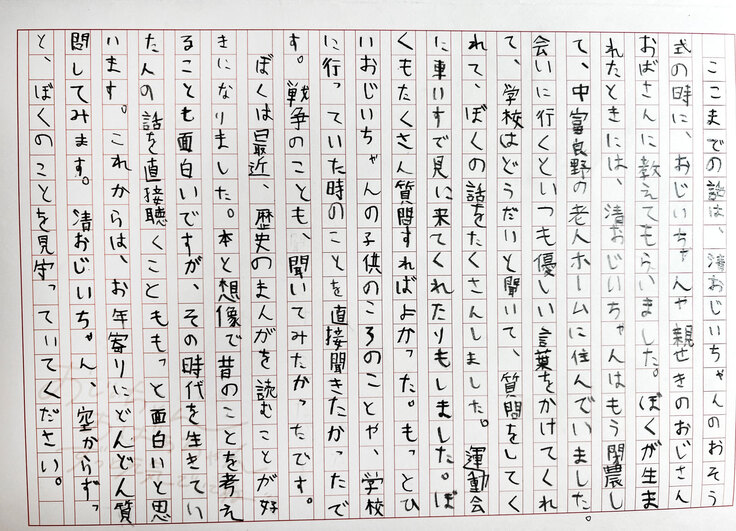 ここまでの話は、清おじいちゃんのおそう
式の時に、おじいちゃんや親せきのおじさん
おばさんに教えてもらいました。ぼくが生ま
れたときには、清おじいちゃんはもう閉農し
て、中富良野の老人ホームに住んでいました。
会いに行くといつも優しい言葉をかけてくれ
て、学校はどうだいと聞いて、質問をしてく
れて、ぼくの話をたくさんしました。運動会
に車いすで見に来てくれたりもしました。ぼ
くもたくさん質問すればよかった。もっとひ
いおじいちゃんの子供のころのことや、学校
に行っていた時のことを直接聞きたかったで
す。戦争のことも、聞いてみたかったです。
ぼくは最近、歴史のまんがを読むことが好
きになりました。本と想像で昔のことを考え
ることも面白いですが、その時代を生きてい
た人の話を直接聴くことももっと面白いと思
います。これからは、お年寄りにどんどん質
問してみます。清おじいちゃん、空からずっ
と、ぼくのことを見守っていてください。